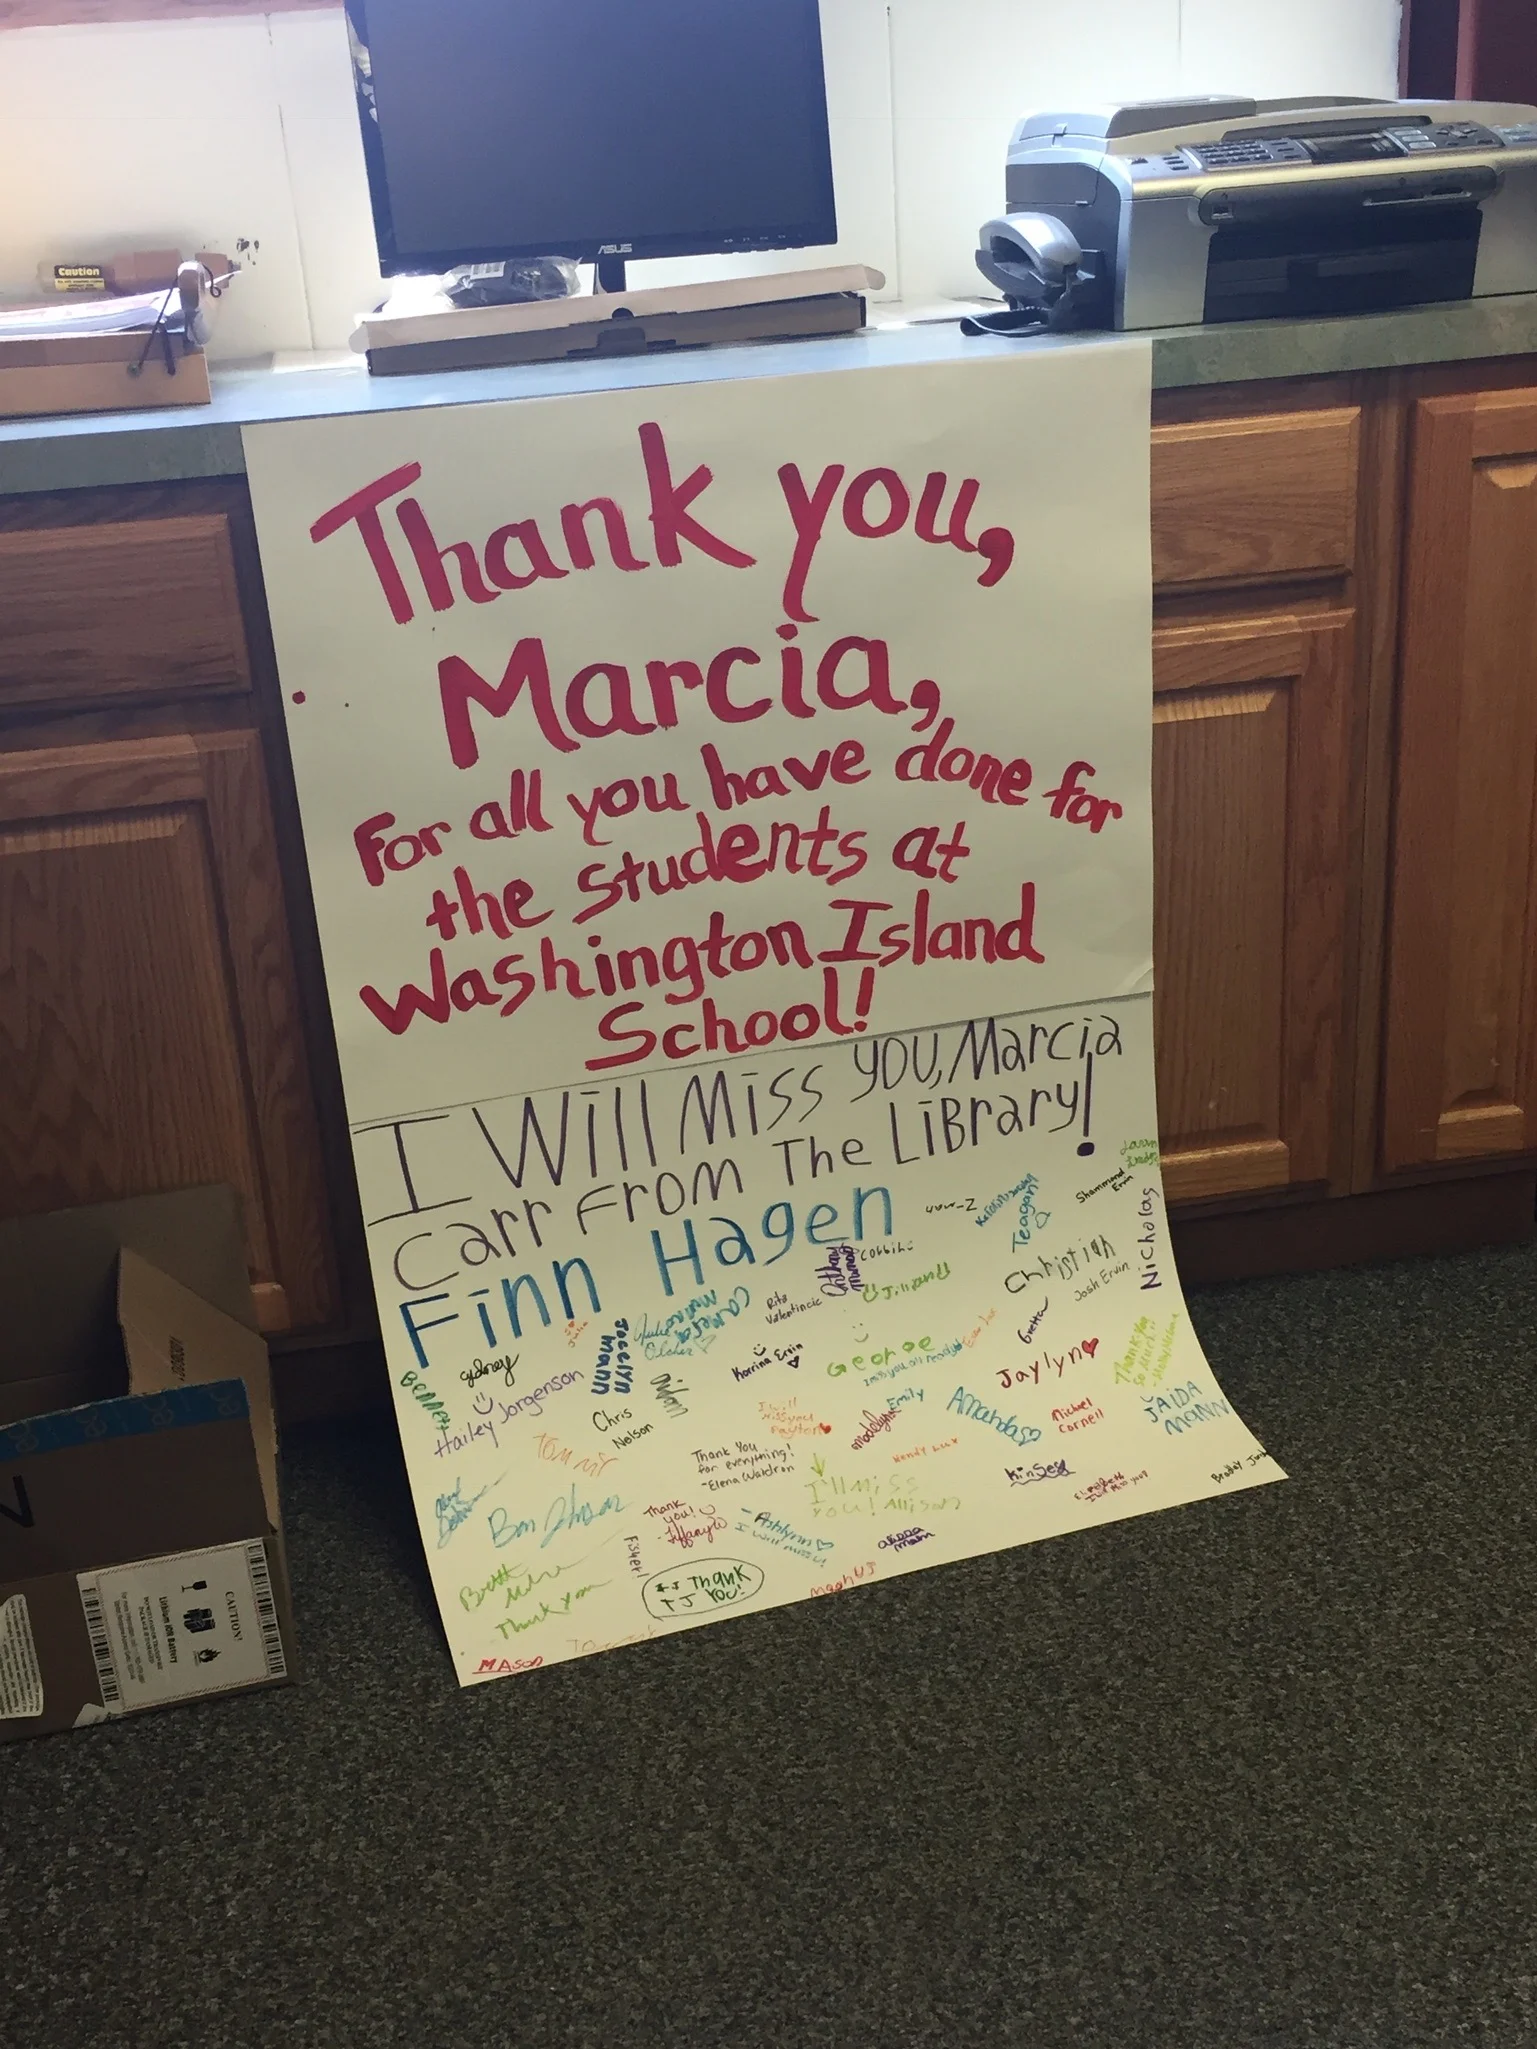 ASUS
Caution
Thank you,
Marcia,
For all you have done for
the students at
Washington Island
School!
I Will Miss you, Marcia
Carr From The Library!
Finn Hagen
Shammond
Ervin
Teagan
Nicholas
Corbin
Christian
Josh Ervin
Jillian
Rita
Valentincic
Camera
Julia
Jocelyn
Mann
Gretta
George
Korrina Ervin
Sydney
Jaylyn
Thank You
So Much!!
Bennett
Hailey Jorgenson
Emily
Amanda
JAIDA
MANN
Chris
Nelson
I will
miss you
Payton
Madelyn
Michael
Cornell
Tom
Thank You
for everything!
-Elena Waldron
Wendy
Kinsey
Elizabeth
I'll miss
you! Allison
Ben Johnson
Thank
you!
-Tiffany
-Ashlynn
I will miss u!
Alissa
Mann
Fisher!
Brett
Thank you
TJ Thank
TJ You!
Magnus
Mason
CAUTION!
Lithium ION Battery